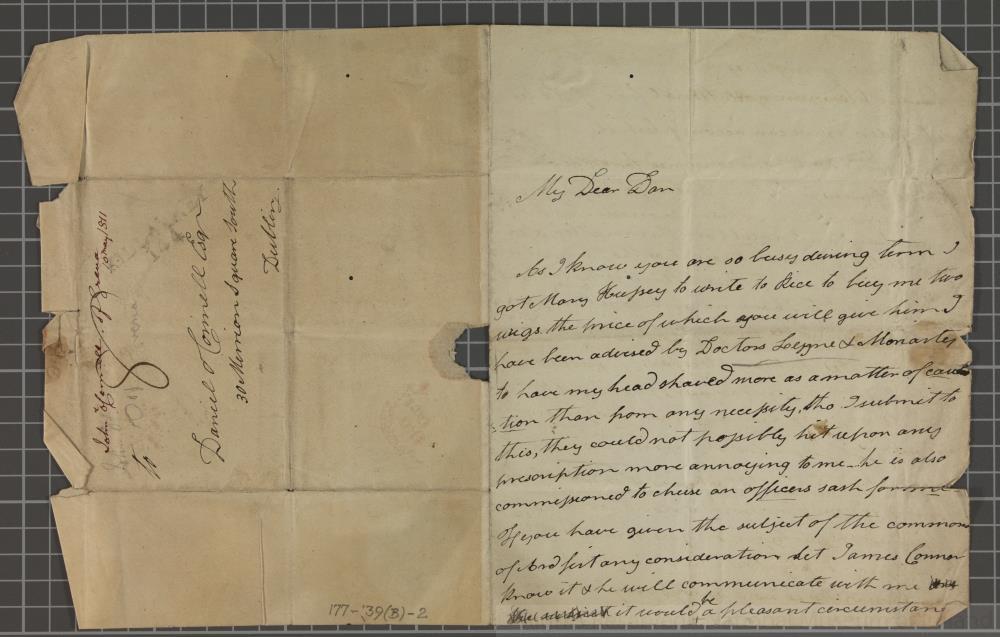 To
Daniel O Connell Esqr
30 Merrion Square South
Dublin
177-'39(B)-2
My Dear Dan
As I know you are so busy during term I
got Mary Hussey to write to Rice to buy me two
wigs the price of which you will give him I
have been advised by Doctors Leyne & Moriarty
to have my head shaved more as a matter of cau
tion than from any necessity, tho I submit to
this, they could not possibly hit upon any
prescription more annoying to me he is also
commissioned to chuse an officers sash for me
If you have given the subject of the common
of Ardfert any consideration let James Connor
know it & he will communicate with me
it would be a pleasant circumstan